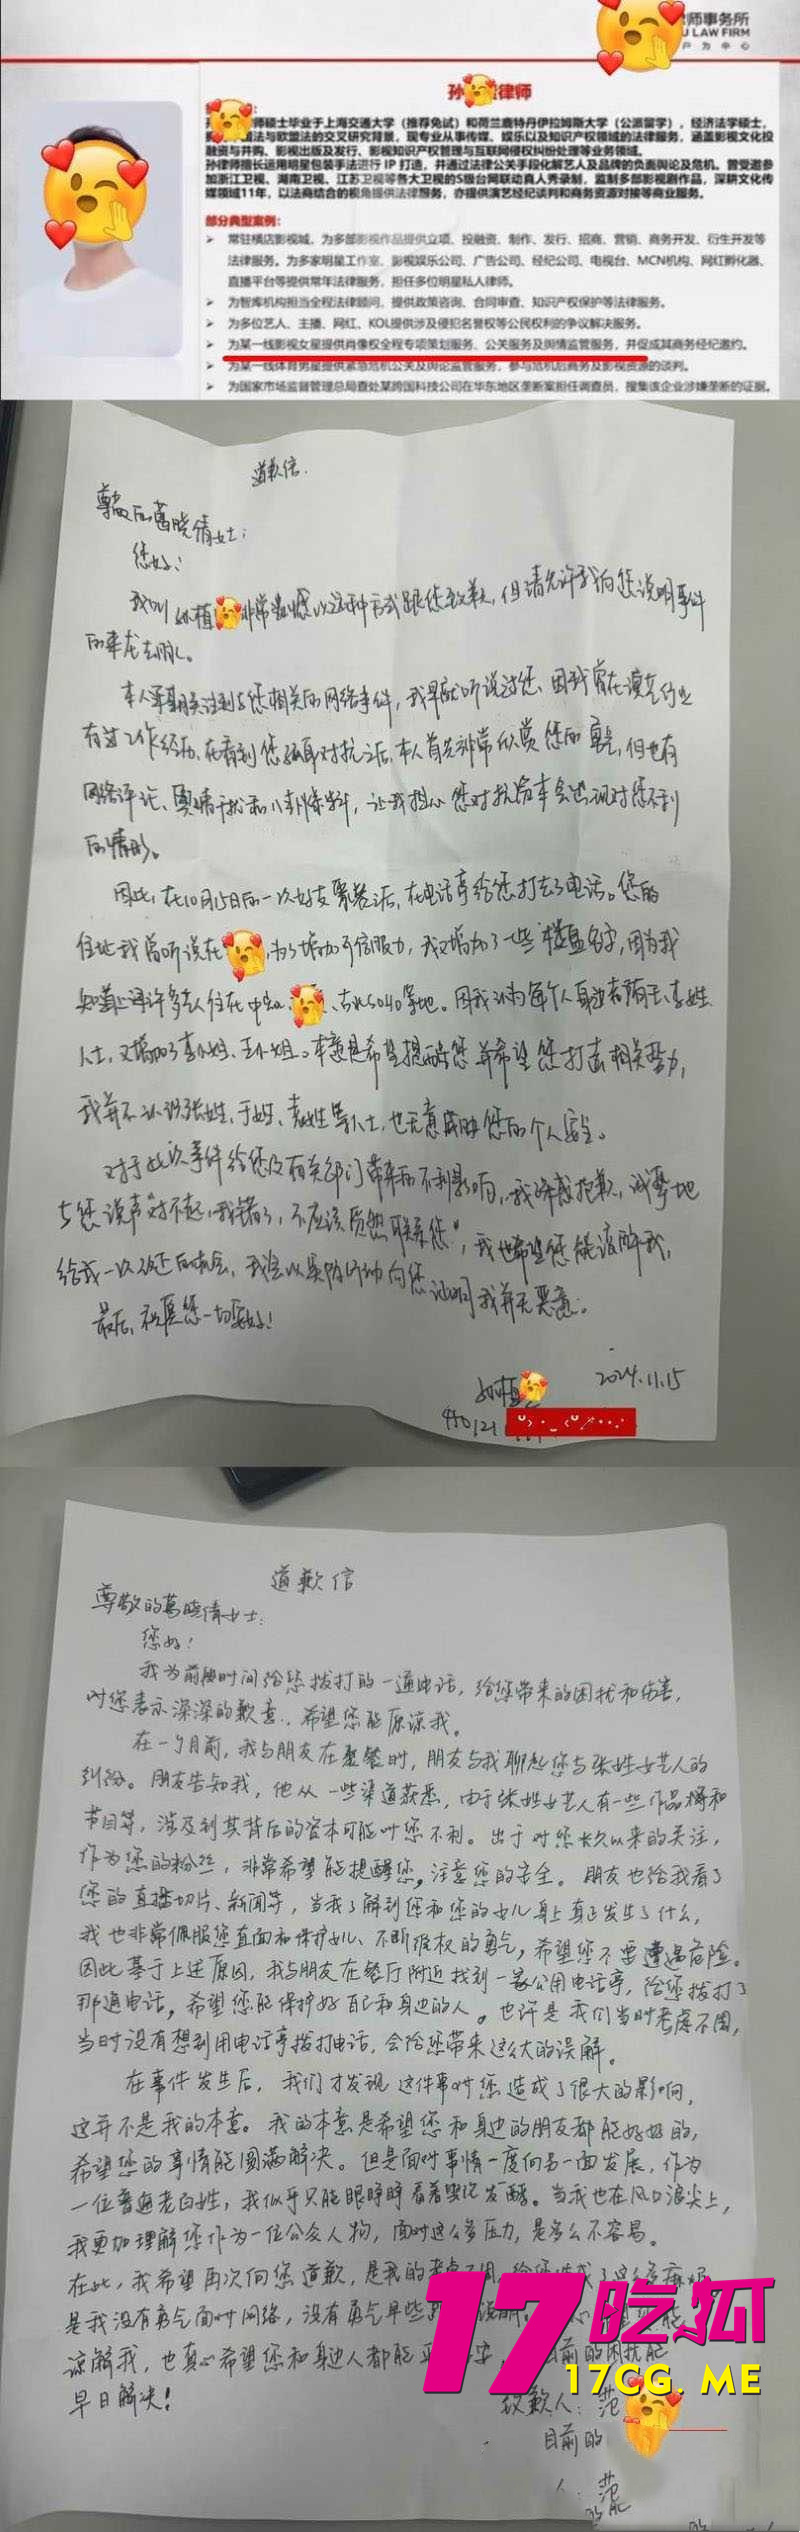 律师事务所
U LAW FIRM
户为中心
孙 律师
师硕士毕业于上海交通大学（推荐免试）和荷兰鹿特丹伊拉姆斯大学（公派留学），经济法学硕士，
法与欧盟法的交叉研究背景，现专业从事传媒、娱乐以及知识产权领域的法律服务，涵盖影视文化投
融资与并购、影视出版及发行、影视知识产权管理与互联网侵权纠纷处理等业务领域。
孙律师擅长运用明星包装手法进行 IP 打造，并通过法律公关手段化解艺人及品牌的负面舆论及危机。曾受邀参
加浙江卫视、湖南卫视、江苏卫视等各大卫视的S级台网联动真人秀录制，监制多部影视剧作品，深耕文化传
媒领域11年，以法商结合的视角提供法律服务，亦提供演艺经纪谈判和商务资源对接等商业服务。
部分典型案例：
常驻横店影视城，为多部影视作品提供立项、投融资、制作、发行、招商、营销、商务开发、衍生开发等
法律服务。为多家明星工作室、影视娱乐公司、广告公司、经纪公司、电视台、MCN机构、网红孵化器、
直播平台等提供常年法律服务，担任多位明星私人律师。
为智库机构担当全程法律顾问，提供政策咨询、合同审查、知识产权保护等法律服务。
为多位艺人、主播、网红、KOL提供涉及侵犯名誉权等公民权利的争议解决服务。
为某一线影视女星提供肖像权全程专项策划服务、公关服务及舆情监管服务，并促成其商务经纪邀约。
为某一线体育男星提供紧急危机公关及舆论监管服务，参与危机后商务及影视资源的谈判。
为国家市场监督管理总局查处某跨国科技公司在华东地区垄断案担任调查员，搜集该企业涉嫌垄断的证据。
道歉信
尊敬的葛晓倩女士：
您好！
我叫孙植 非常抱歉以这种方式跟您致歉，但请允许我向您说明事件
的来龙去脉。
本人早期关注到与您相关的网络事件，我早就听说过您，因我曾在演艺行业
有过工作经历，在看到您硬刚对抗之后，本人首先非常欣赏您的勇气，但也有
网络评论、舆情干扰和八卦爆料，让我担心您对抗资本会出现对您不利
的情形。
因此，在10月15日的一次好友聚餐后，在电话亭给您打去了电话。您的
住址我曾听说在 ，为了增加可信服力，我又增加了一些楼盘名字，因为我
知道上海许多艺人住在中 、 、 5040等地。因我认为每个人身边都有王、李姓
人士，又增加了李小姐、王小姐。本意是希望提醒您并希望您打击相关势力，
我并不认识张姓、于姓、袁姓等人士，也无意威胁您的个人安全。
对于此次事件给您及有关部门带来的不利影响，我深感抱歉，诚挚地
与您说声“对不起，我错了，不应该贸然联系您”，我也希望您能谅解我，
给我一次改正的机会，我会以实际行动向您证明我并无恶意。
最后，祝愿您一切安好！
孙植
2024.11.15
道歉信
尊敬的葛晓倩女士：
您好！
我为前段时间给您拨打的一通电话，给您带来的困扰和伤害，
对您表示深深的歉意，希望您能原谅我。
在一个月前，我与朋友在聚餐时，朋友与我聊起您与张姓女艺人的
纠纷。朋友告知我，他从一些渠道获悉，由于张姓女艺人有一些作品将和
节目等，涉及到其背后的资本可能对您不利。出于对您长久以来的关注，
作为您的粉丝，非常希望能提醒您，注意您的安全。朋友也给我看了
您的直播切片、新闻等，当我了解到您和您的女儿身上真正发生了什么，
我也非常佩服您直面和保护女儿、不断维权的勇气，希望您不要遭遇危险。
因此基于上述原因，我与朋友在餐厅附近找到一家公用电话亭，给您拨打了
那通电话，希望您能保护好自己和身边的人。也许是我们当时考虑不周，
当时没有想到用电话亭拨打电话，会给您带来这么大的误解。
在事件发生后，我们才发现这件事对您造成了很大的影响，
这并不是我的本意。我的本意是希望您和身边的朋友都能好好的，
希望您的事情能圆满解决。但是面对事情一度向另一面发展，作为
一位普通老百姓，我似乎只能眼睁睁看着舆论发酵。当我也在风口浪尖上，
我更加理解您作为一位公众人物，面对这么多压力，是多么不容易。
在此，我希望再次向您道歉，是我的考虑不周，给您造成了这么多麻烦
是我没有勇气面对网络，没有勇气早些
谅解我，也真心希望您和身边人都能平 安， 目前的困扰能
早日解决！
致歉人：范
目前的
人：范
17吃狐
17CG.ME